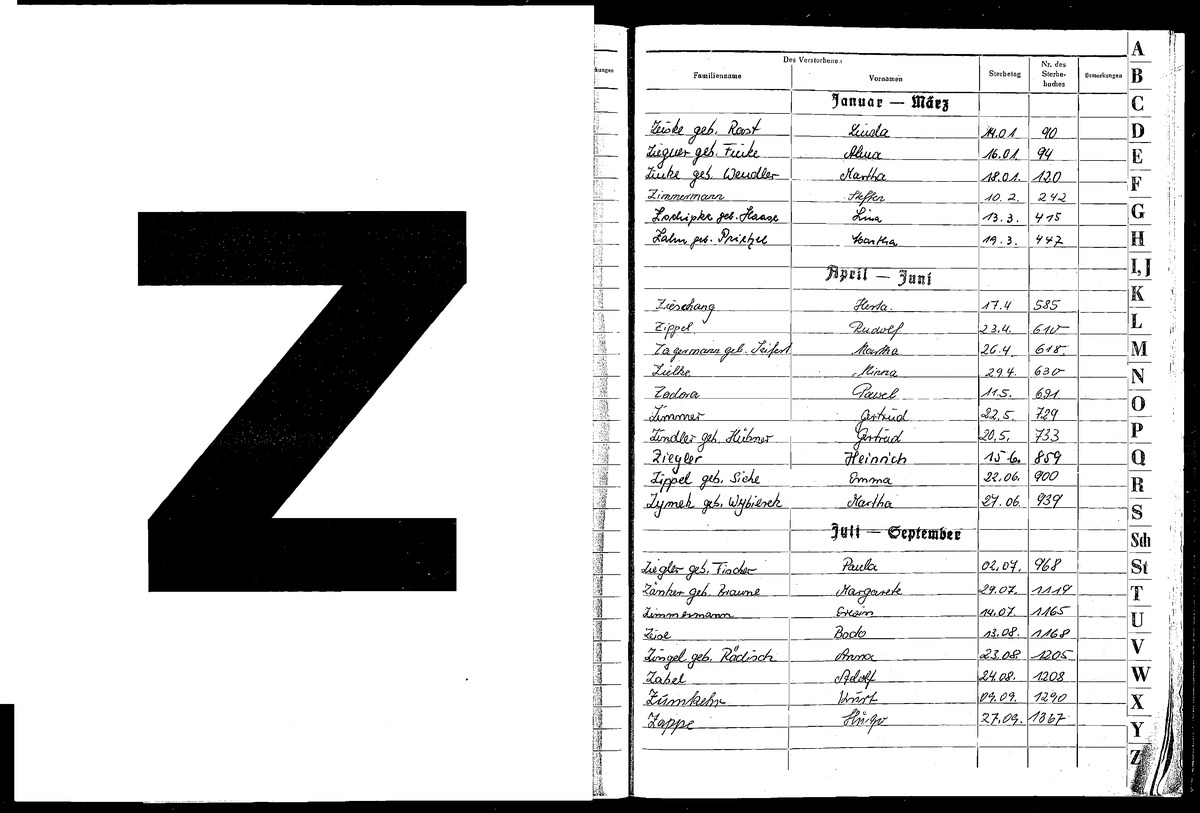 Z
kungen
Des Verstorbenen
Familienname Vornamen Sterbetag Nr. des Sterbe-buches Bemerkungen
Januar — März
Zeiske geb. Rost Linda 14.01. 90
Ziegner geb. Finke Alma 16.01. 94
Zinke geb. Wendler Martha 18.01. 120
Zimmermann Steffen 10.2. 242
Zschipke geb. Haase Lina 13.3. 415
Zahn geb. Prietzel Martha 19.3. 447
April — Juni
Zieschang Herta 17.4 585
Zippel Rudolf 23.4. 610
Zagermann geb. Seifert Martha 26.4. 618
Zielke Minna 29.4. 630
Zadora Pawel 11.5. 691
Zimmer Gertrud 22.5. 729
Zindler geb. Hübner Gertrud 20.5. 733
Ziegler Heinrich 15.6. 859
Zippel geb. Siche Emma 22.06. 900
Zymek geb. Wybierek Martha 27.06. 939
Juli — September
Ziegler geb. Fischer Paula 02.07. 968
Zänker geb. Braune Margarete 29.07. 1119
Zimmermann Erwin 14.07. 1165
Zeise Bodo 13.08. 1168
Zingel geb. Rädisch Anna 23.08. 1205
Zabel Adolf 24.08. 1208
Zumkehr Kurt 09.09. 1290
Zappe Hugo 27.09. 1367
A
B
C
D
E
F
G
H
I, J
K
L
M
N
O
P
Q
R
S
Sch
St
T
U
V
W
X
Y
Z